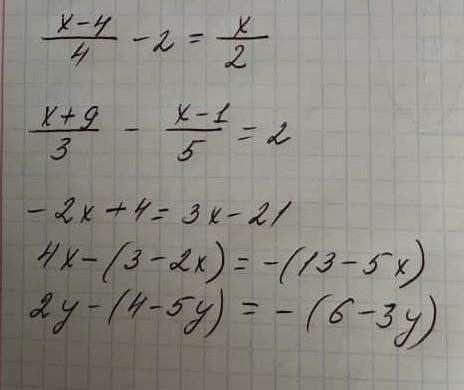 (x-4)/4 - 2 = x/2
(x+9)/3 - (x-1)/5 = 2
-2x+4=3x-21
4x-(3-2x)=-(13-5x)
2y-(4-5y)=-(6-3y)